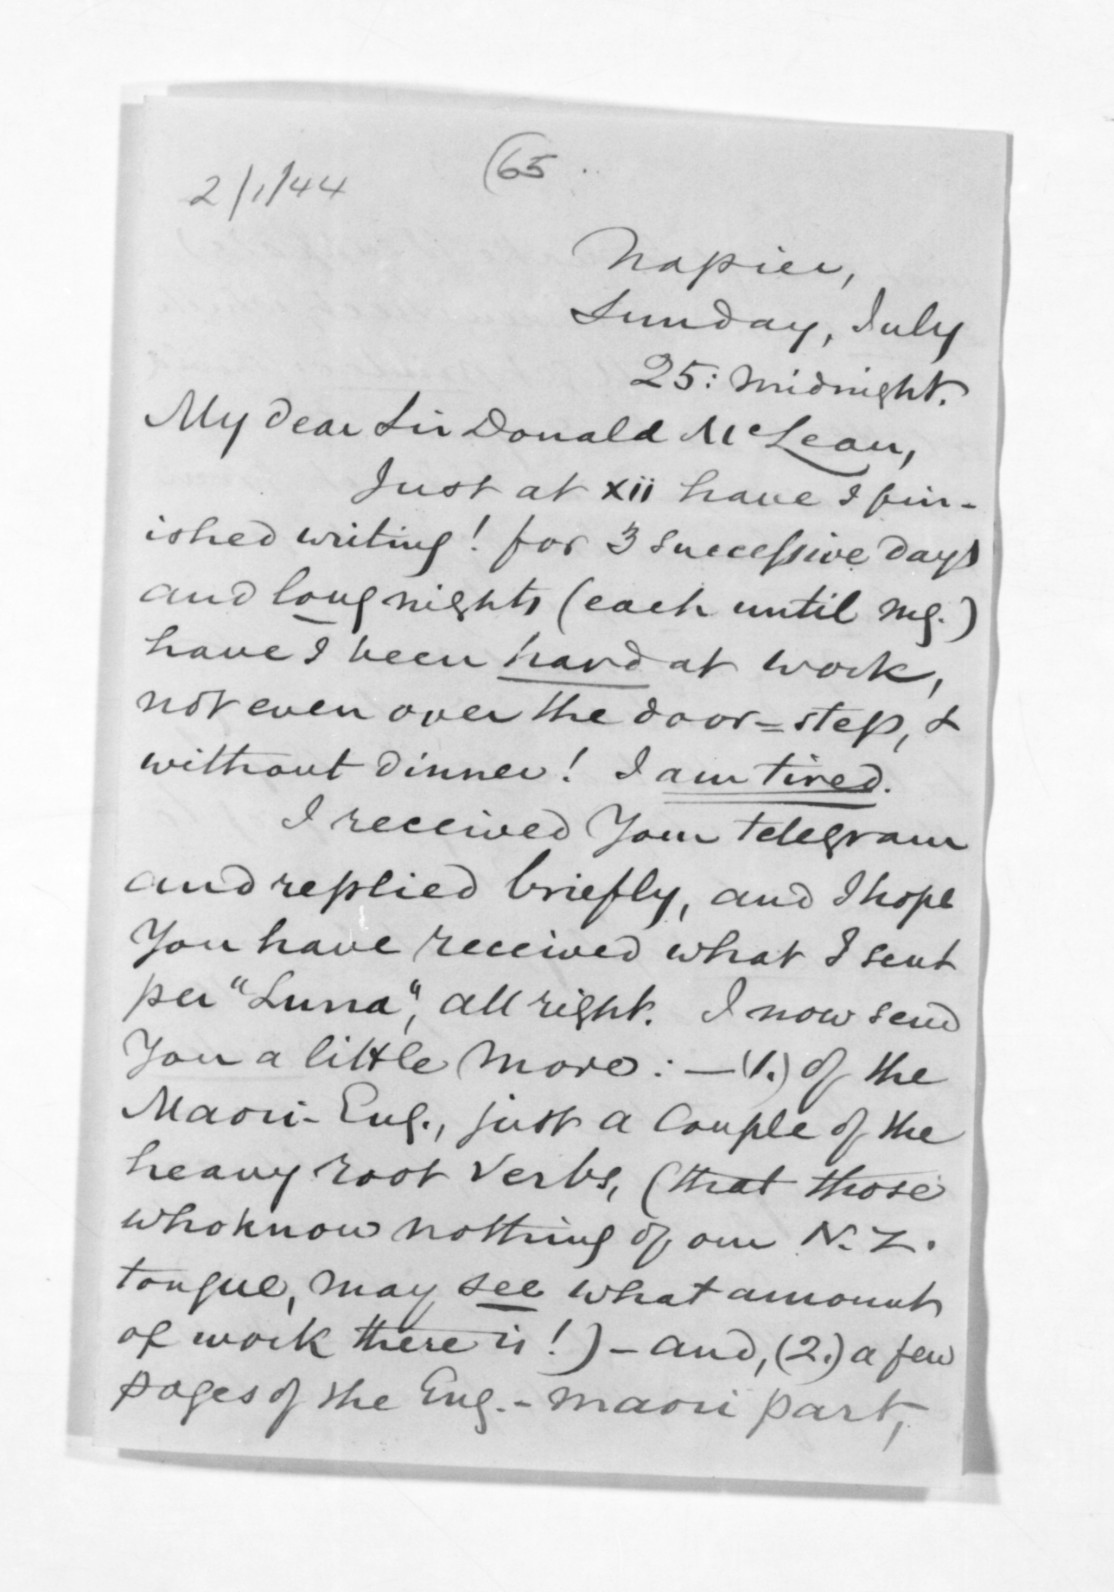 (65
2/1/44
Napier,
Sunday, July
25: midnight.
My dear Sir Donald McLean,
Just at xii have I fin-
ished writing! for 3 successive days
and long nights (each until mg.)
have I been hard at work,
not even over the door=step, &
without dinner! I am tired.
I received Your telegram
and replied briefly, and I hope
You have received what I sent
per "Luna", all right. I now send
You a little more: — (1.) of the
Maori-Eng., just a couple of the
heavy root verbs, (that those
who know nothing of our N.Z.
tongue, may see what amount
of work there is!) – and, (2.) a few
pages of the Eng.-Maori part,